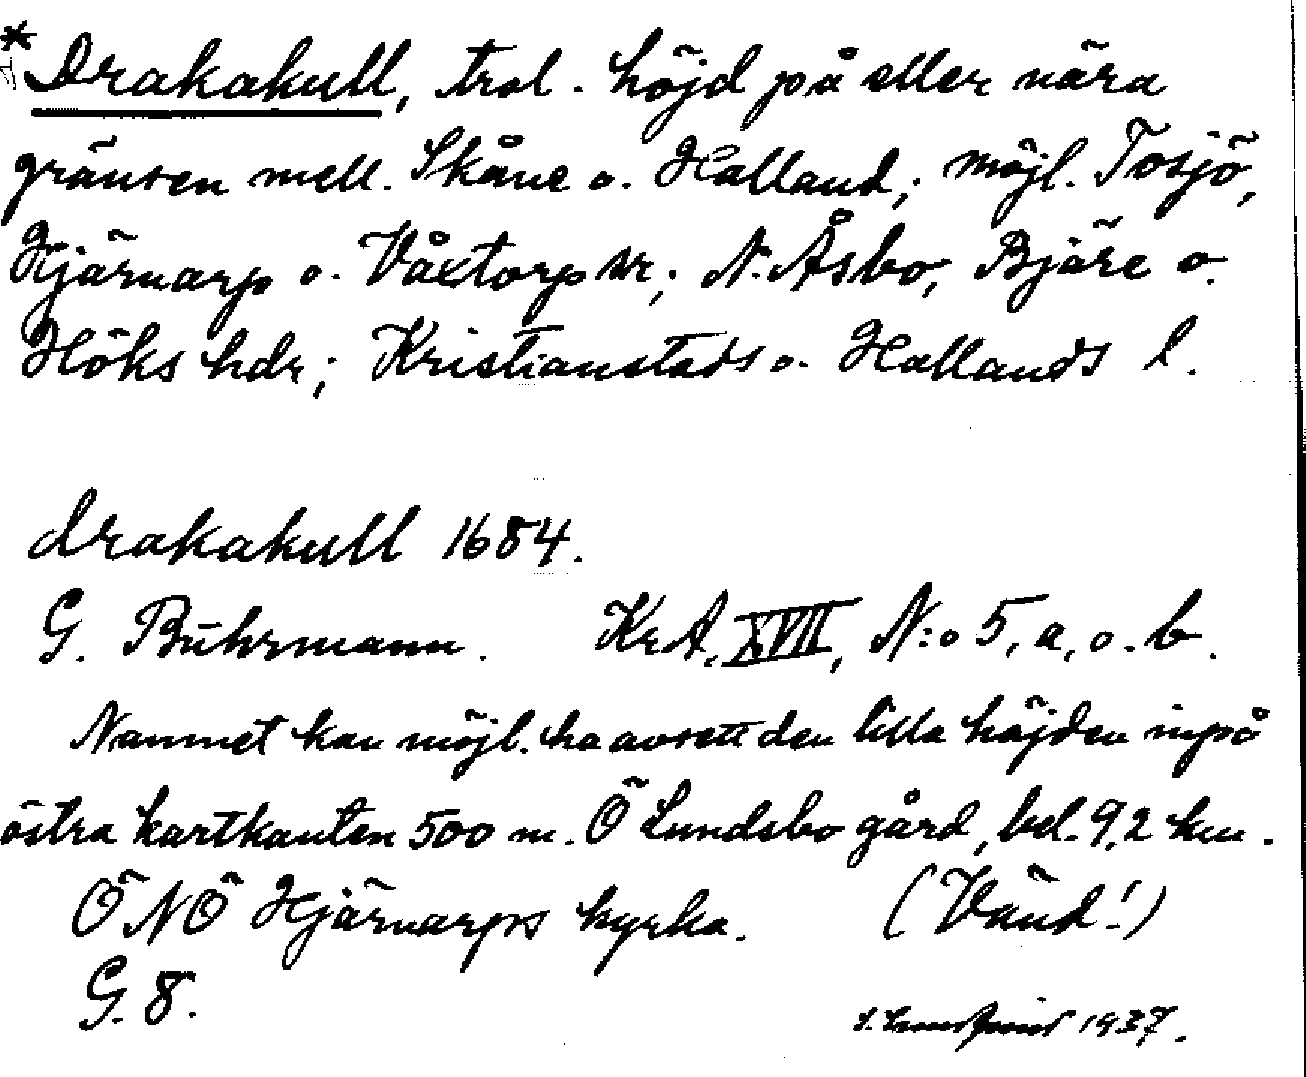 * Drakakull, trol. höjd på eller nära
gränsen mell. Skåne o. Halland; möjl. Tosjö,
Hjärnarp o. Våxtorp sr; N. Åsbo, Bjäre o.
Höks hdr; Kristianstads o. Hallands l.
drakakull 1684.
G. Buhrmann. KrA, XVII, N:o 5, a, o. b.
Namnet kan möjl. ha avsett den lilla höjden inpå
östra kartkanten 500 m. Ö Lundsbo gård, bel. 9,2 km.
ÖNÖ Hjärnarps kyrka. (Vänd!)
G. 8.
1937.